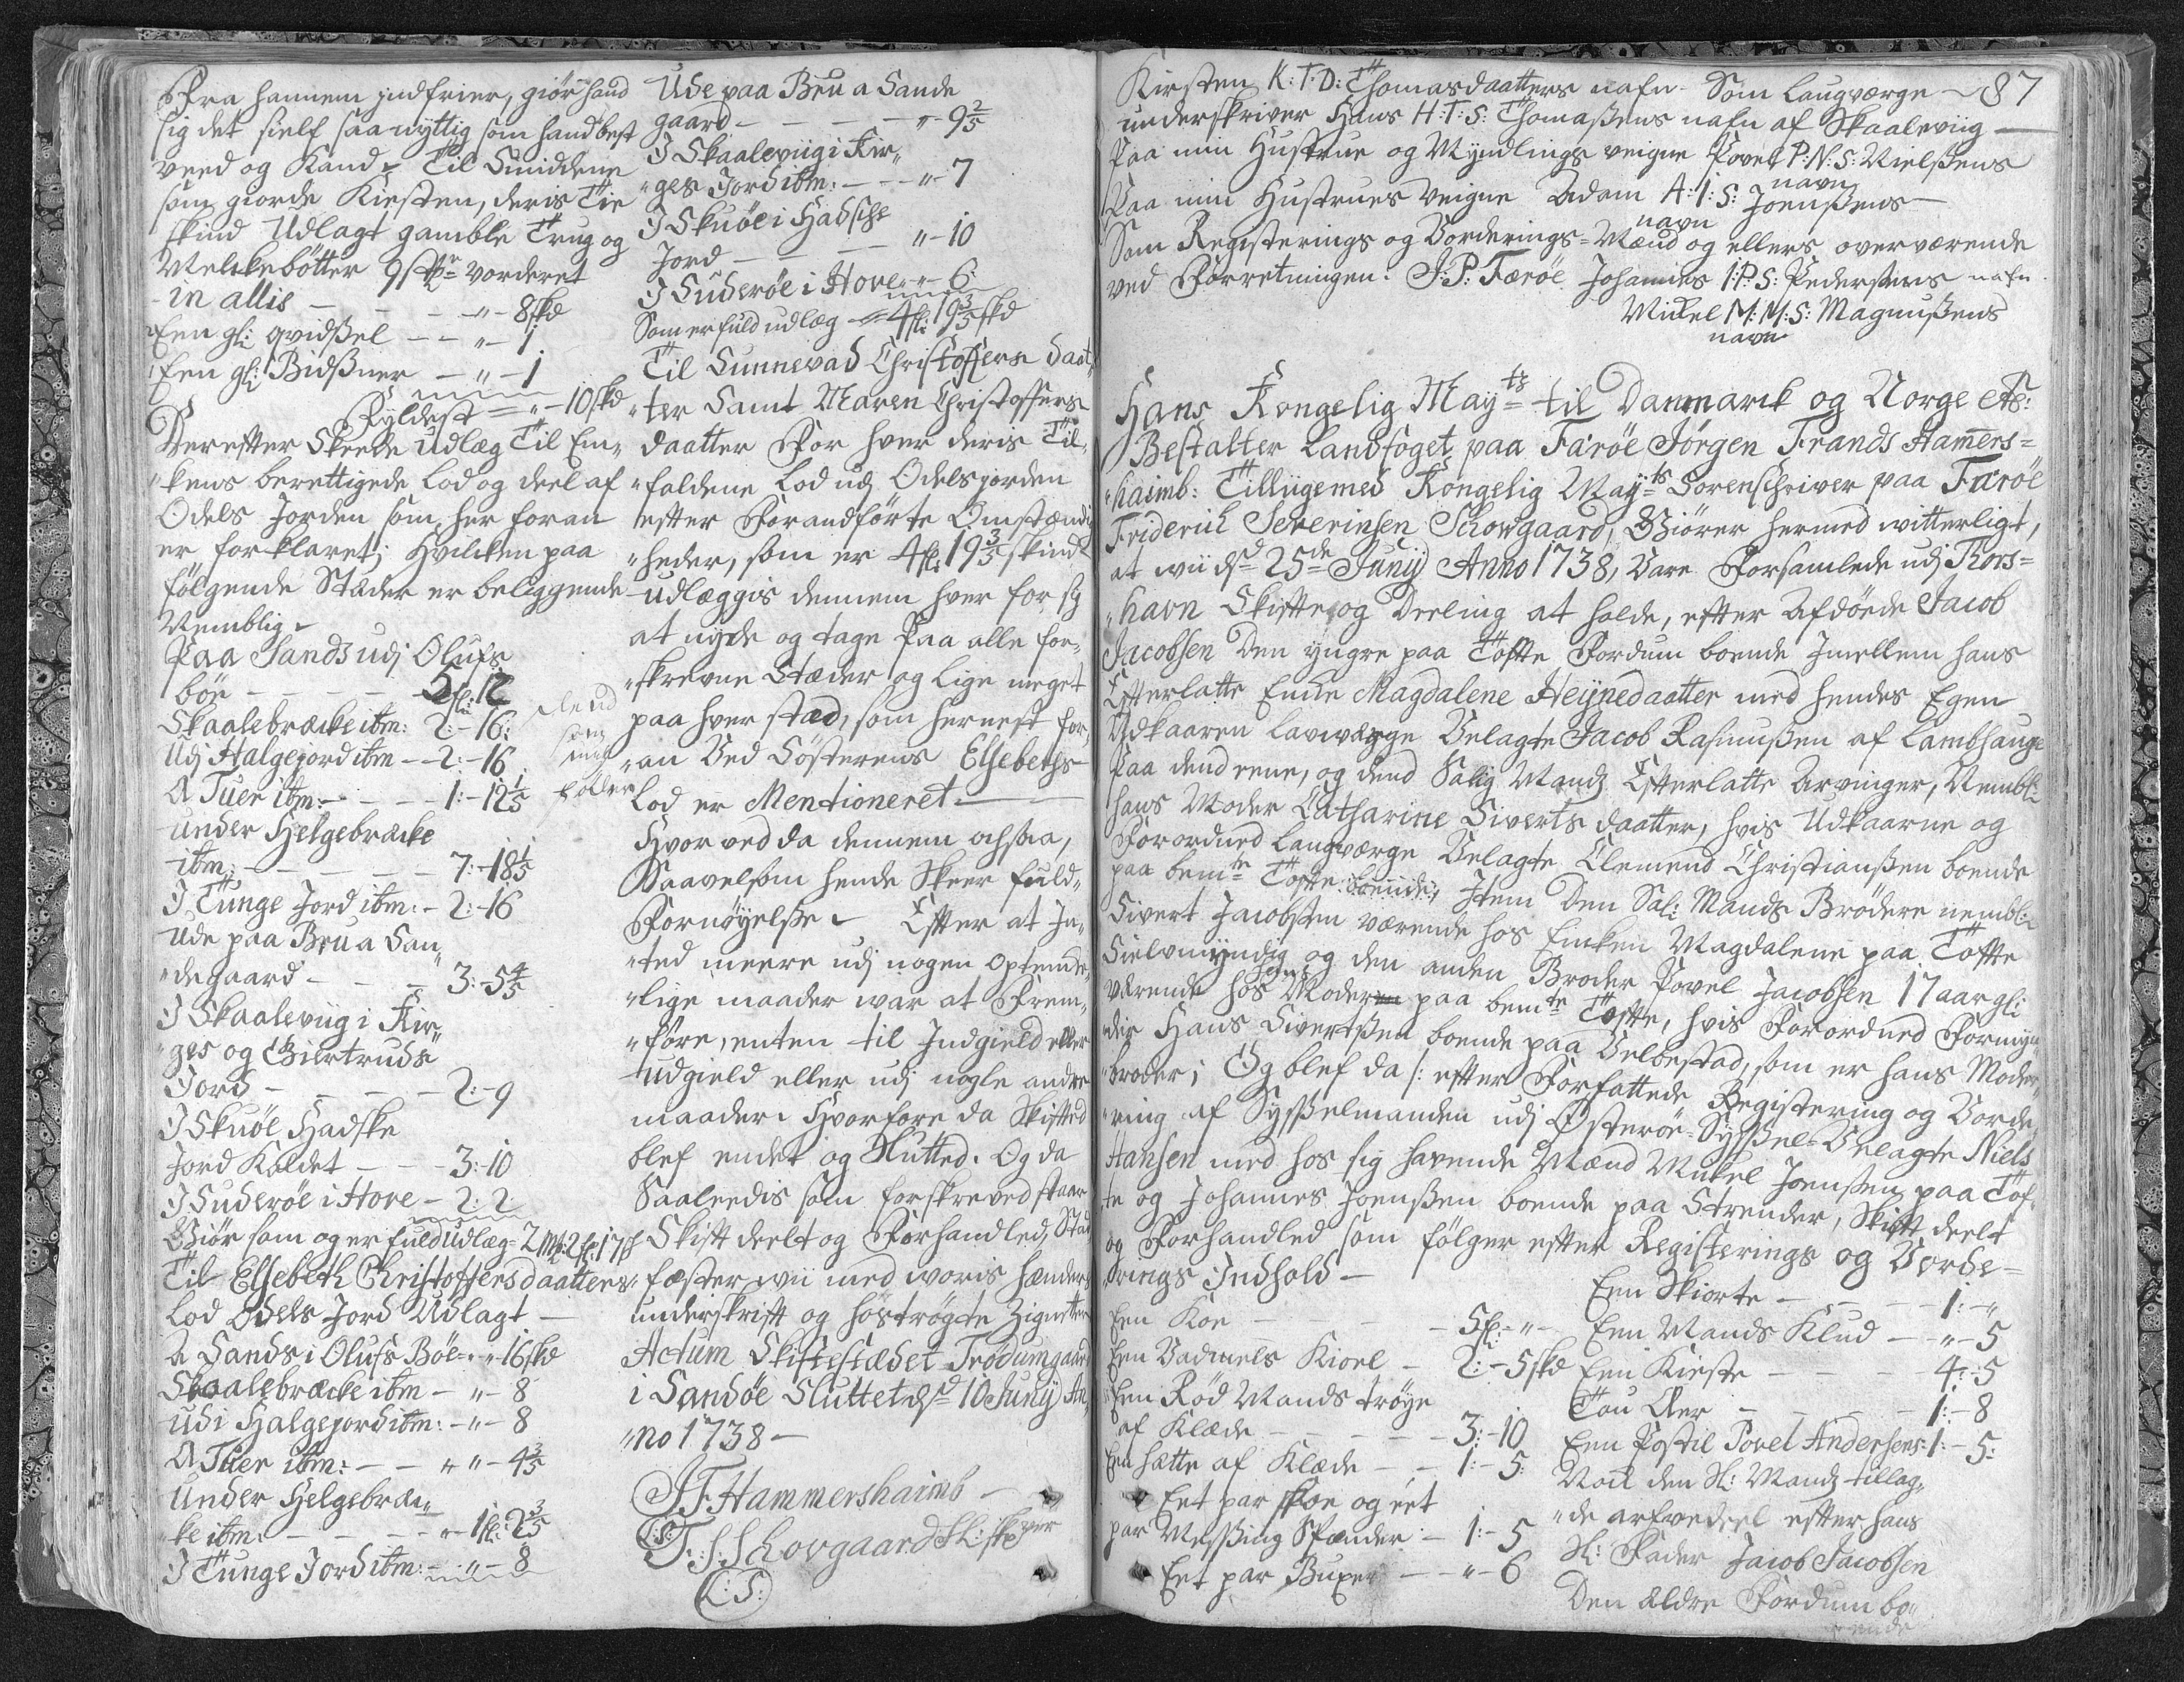 Fra hannem indfrier, giör hand
sig det sielf saa nyttig som hand best
veed og Kand. Til Smiddene
som giorde Kirsten, deris Tie
skind Udlagt gamble Trug og
Melckebötter 9 st vorderet
in allis - - " - 8 skd
Een gl: qvidssel - - " - 1
Een gl: Bidssner - " - 1
Fyldest = " - 10 skd
Derefter Skeede Udlæg Til En„
„kens berettigede Lod og deel af
Odels Jorden som her foran
er forklaret; Hvilcken paa
følgende Stæder er beliggende
Nemblig.
Paa Sands udj Olufs
böe - - - - 5 fl: 12
Skaalebræcke ibm: 2: - 16:
Udj Halgejord ibm - - 2: - 16
A Tuer ibm: - - - 1: - 12 1/5
under Helgebræcke
ibm: - - - - 7: - 18 1/5
I Tunge Jord ibm: - 2: - 16
Ude paa Brua San„
„degaard - - - 3: - 5 4/5
I Skaaleviig i Kir„
„ges og Giertruds
Jord - - - - 2: - 9
I Skuöe Hadske
Jord Kaldet - - - 3: - 10
I Suderöe i Hove - 2: 2
Giör som og er fuld Udlæg = 2 Mk: 2 fl: 17 s
Til Elsebeth Christoffersdaatters
Lod Odels Jord Udlagt -
A Sands i Olufs Böe - " - 16 skd
Skaalebræcke ibm - " - 8
udi Halgejord ibm: - " - 8
A Tuer ibm: - - " " - 4 3/5
Under Helgebræ„
„cke ibm: - - - - " 1 fl: 2 3/5
I Tunge Jord ibm: - " - 8
Ude paa Brua Sande
gaard - - - - " - 9 2/5
I Skaaleviig i Kir„
„ges Jord ibm: - - - " - 7
I Skuöe i Hadsche
Jord - - - - " - 10
I Suderöe i Hove " - 6:
Som er fuld udlæg = 4 fl: 19 3/5 skd
Til Sunnevad Christoffers daat„
„ter Samt Maren Christoffers
daatter For hver deris Til„
„faldene Lod udj Odelsjorden
efter Forandførte Omstændig
„heder, som er 4 fl: 19 3/5 skind
udlæggis dennem hver for sig
at nyde og tage Paa alle for„
„skrevne Stæder og Lige meget
paa hver stæd, som hernest for„
„an Ved Söstrens Elsebeths
Lod er Mentioneret. -
Hvorved da dennem ochsaa,
Saavelsom hende Skeer fuld„
Fornöyelsse. Efter at In„
„ted meere udj nogen optencke„
„lige maader var at Frem„
„före, enten til Indgield eller
Udgield eller udj nogle andre
maader. Hvorfore da Skifted
blef endet og Sluttet. Og da
Saaleedis som forskreved staar
Skift deelt og Forhandled, Stad
„fæster wii med woris hænders
underskrift og hoströgte Zignetter
Actum Skiftestædet Trödumgaard
i Sandöe Sluttet d 10 Juny An„
„no 1738 -
J F Hammershaimb
(L:S:)
F: S: Schovgaard Sl: skrver
(L:S:)
87
Kirsten K:T:D: Thomasdaatters nafn. Som Laugværge
underskriver Hans H:T:S: Thomassens nafn af Skaaleviig -
Paa min Hustrue og Myndlings veigne Povel P:N:S: Nielssens
navn
Paa min Hustrues Veigne Adam A:I:S: Joenssens
navn
Som Registerings og Vorderings-Mænd og ellers overværende
ved Forretningen: J: P: Færöe Johannes I:P:S: Pederssens nafn
Mikel M:M:S: Magnussens
navn
Hans Kongelig Mayts til Danmarck og Norge etc:
Bestalter Landfoget paa Færöe Jörgen Frands Hamers=
„haimb: Tilliigemed Kongelig Mayts Sorenschriver paa Færöe
Friderich Severinsen Schovgaard, Giörer hermed witterligt,
at wii d 25de Junij Anno 1738, Vare Forsamlede udj Thors=
„havn Skifte og Deeling at holde, efter Afdöede Jacob
Jacobsen Den yngre paa Tofte Fordum boende Imellem hans
Efterlatte Encke Magdalene Heynedaatter med hendes Egen
Udkaaren Lavværge Velagte Jacob Rasmussen af Lambhauge
Paa dend eene, og dend Salig Mands Efterlatte Arvinger, Nembl:
hans Moder Catharine Siverts daatter, hvis Udkaarne og
Forordned Laugværge Velagte Clemend Christianssen boende
paa bemte Tofte boende, Item Den Sal: Mands Brödere nembl:
Sivert Jacobsen værende hos Encken Magdalene paa Tofte
Sielvmyndig og den anden Broder Povel Jacobsen 17 aar gl:
værende hos hans Moder paa bemte Tofte, hvis Forordned Formyn
„der Hans Sivertssen boende paa Velbestad, som er hans Moder„
„broder; Og blef da /: efter Forfattede Registering og Vorde„
„ring af Sysselmanden udj Österöe-Syssel-Velagte Niels
Hansen med hos sig havende Mænd Mikel Joenssen paa Tof„
te og Johannes Joenssen boende paa Strender, Skift deelt
og Forhandled som følger efter Registerings og Vorde=
„rings Indhold -
Een Koe - - - - 5 fl: - " -
Een Vadmels Kioel - 2: - 5 skd
Een Röd Mands tröye
af Klæde - - - - - 3: - 10
Een hætte af Klæde - - 1: - 5:
Eet par skoe og eet
par Messing Spænder - 1: - 5
Eet par Buxer - - " - 6
Een Skiorte - - - - 1: - "
Een Mands Klud - - " - 5
Een Kieste - - - 4: - 5
Tou Aer - - - - - 1: - 8
Een Postil Povel Andersens: 1: - 5:
Nock den Sl: Mands tillag„
„de arfvedeel efter hans
Sl: Fader Jacob Jacobsen
Den Ældre Fordum bo„
„ende